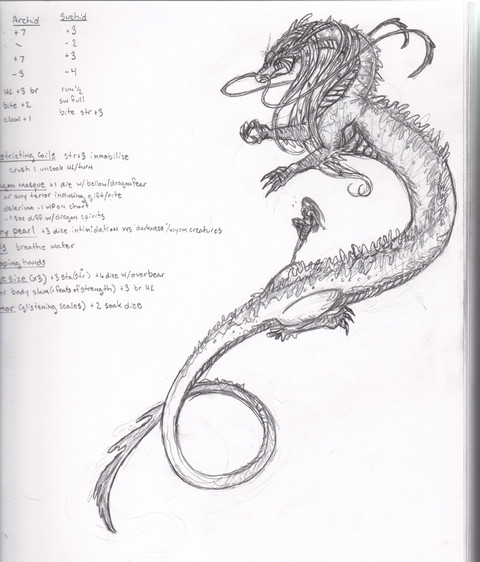 Archid Suchid
+7 +3
-2
+7 +3
-3 -4
HL +3 br run 1/2
bite +2 sw full
claw +1 bite str+3
stricting Coils str+3 immobilize
crush 1 unsoak HL/turn
Masque +1 die w/bellow/dragonfear
or any terror including gift/rite
delerium -1 WP on chart
-1 soc diff w/dragon spirits
pearl +3 dice intimidation vs. darkness/wyrm creatures
breathe water
hands
size (x3) +3 sta(str) +6 dice w/overbear
or body slam (+feats of strength) +3 br HL
mor (glistening scales) +2 soak dice